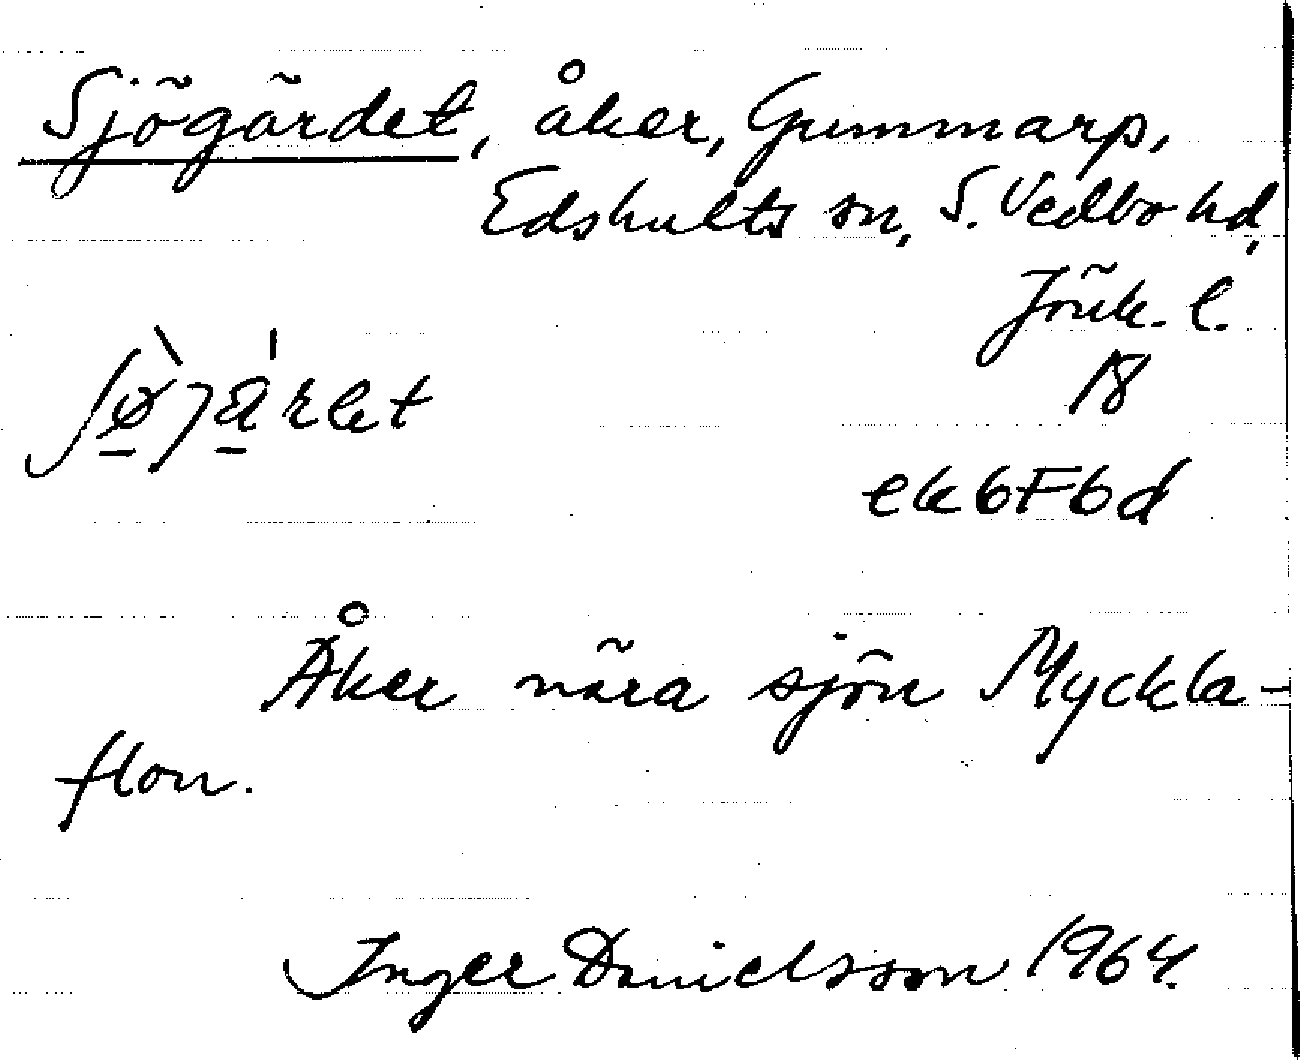 Sjögärdet, åker, Gummarp,
Edshults sn, S. Vedbo hd,
Jönk. l.
18
ek6F6d
Åker nära sjön Myckla-
flon.
Inger Danielsson 1964.